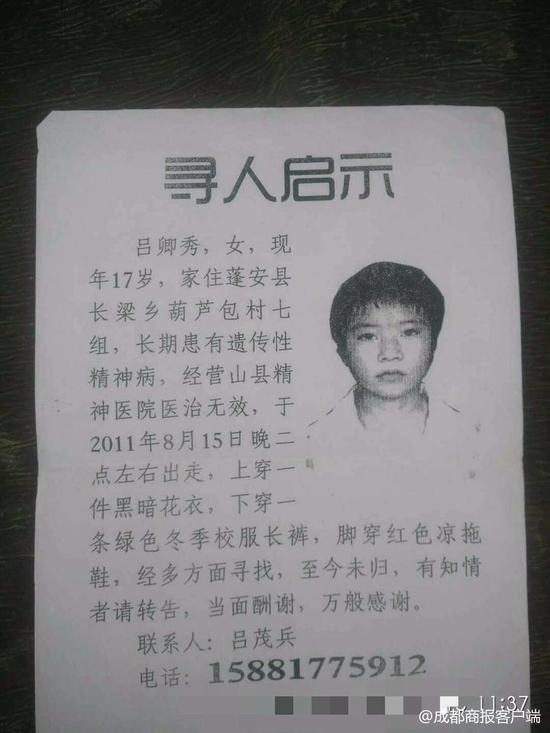 寻人启示
吕卿秀，女，现
年17岁，家住蓬安县
长梁乡葫芦包村七
组，长期患有遗传性
精神病，经营山县精
神医院医治无效，于
2011年8月15日晚二
点左右出走，上穿一
件黑暗花衣，下穿一
条绿色冬季校服长裤，脚穿红色凉拖
鞋，经多方面寻找，至今未归，有知情
者请转告，当面酬谢，万般感谢。
联系人：吕茂兵
电话：15881775912
11:37
@成都商报客户端